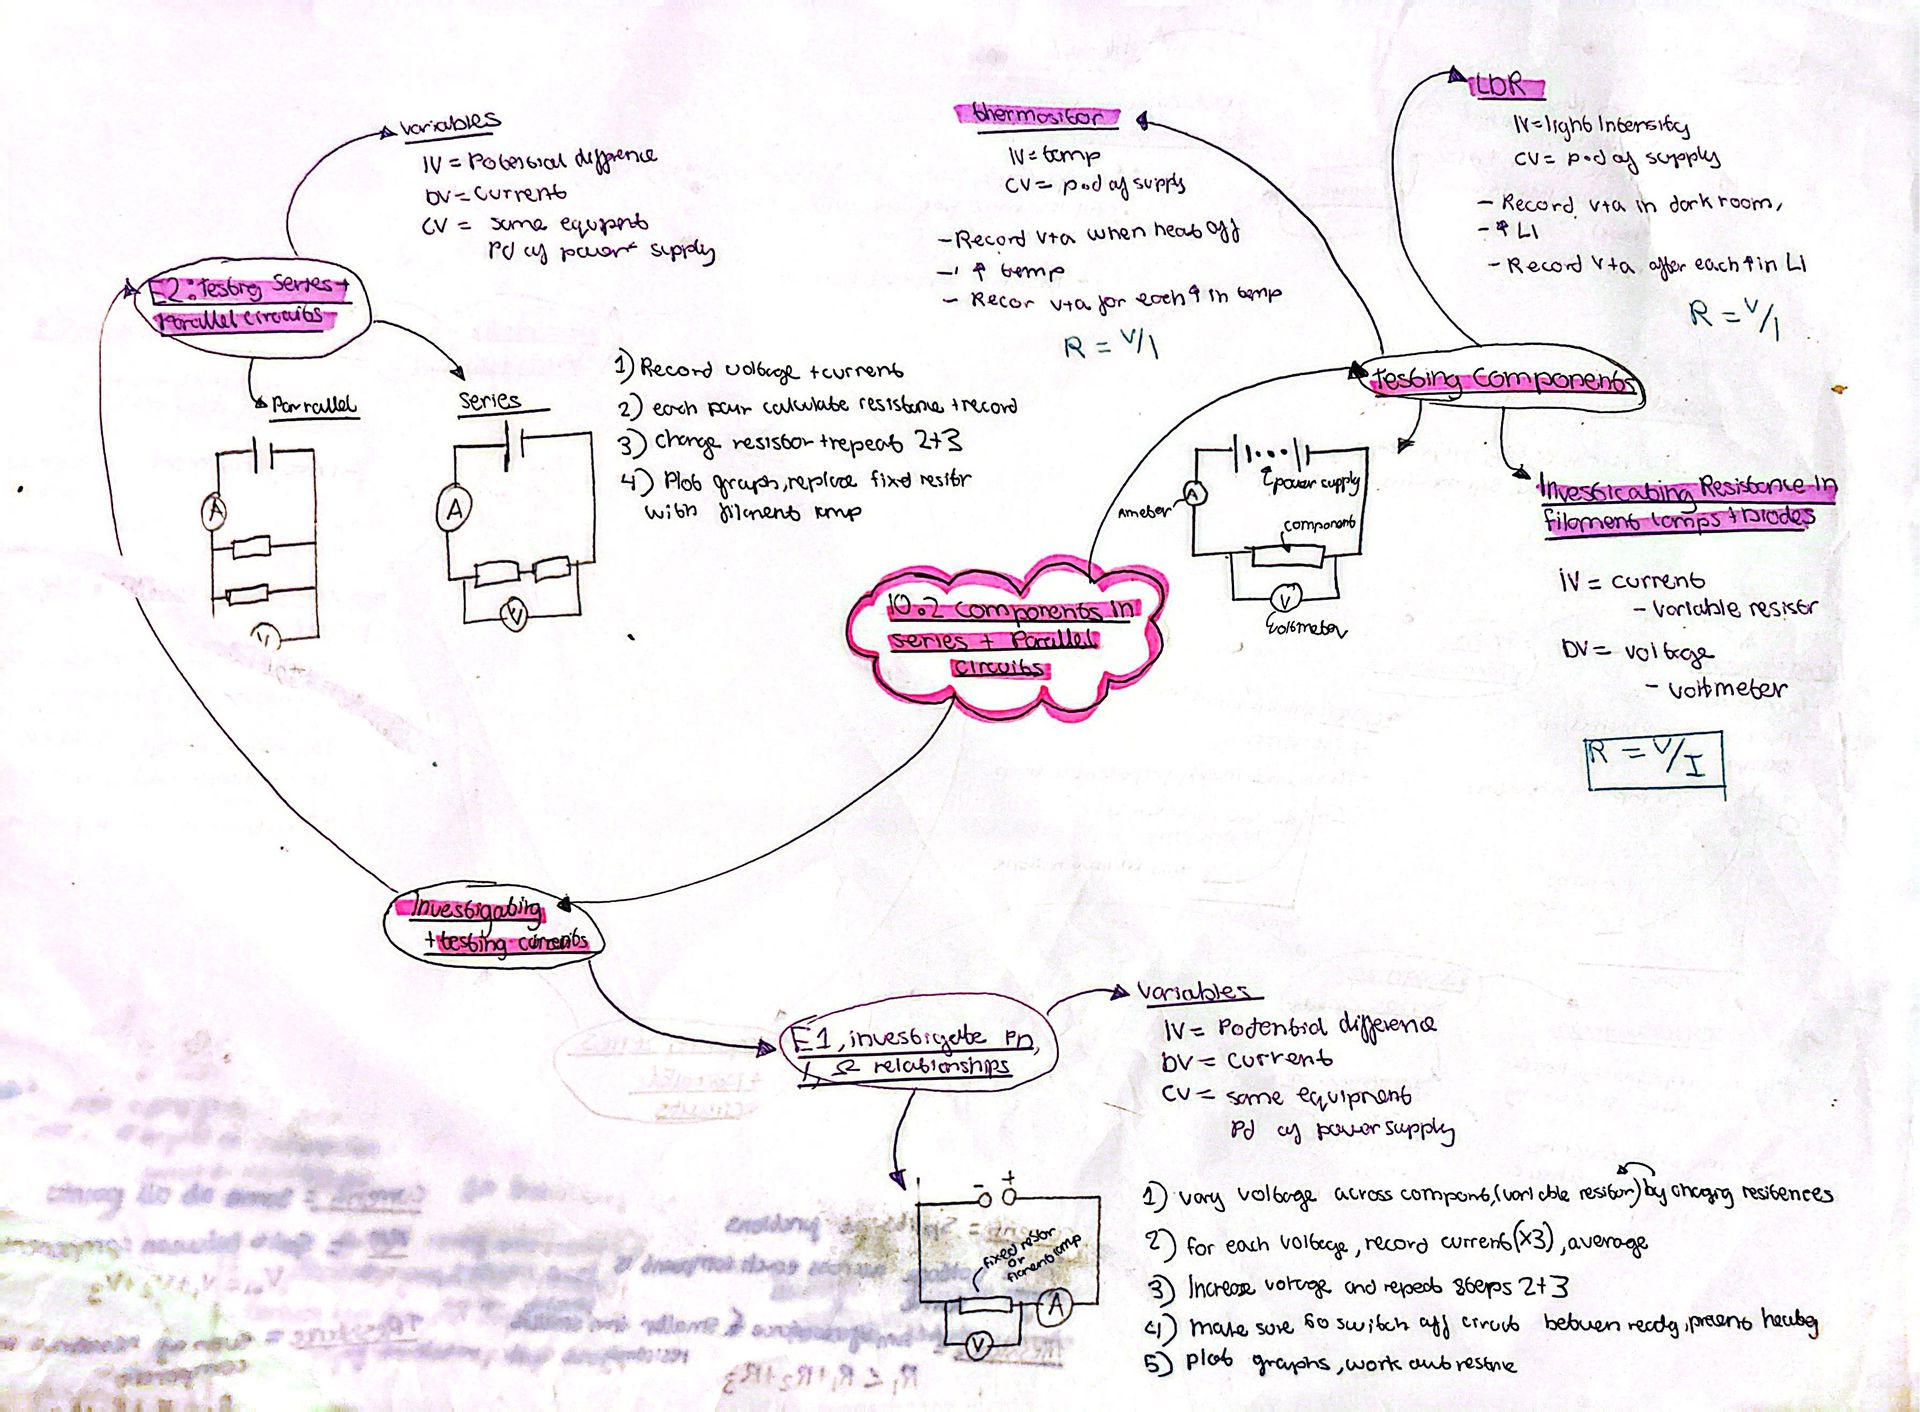 Variables
IV = Potential diffrence
DV = Current
CV = same equipent
Pd of power supply
E2: Testing Series +
Parallel circuits
Parrallel
A
V
Series
A
V
1) Record voltage + current
2) each pair calculate resistance + record
3) change resistor + repeat 2+3
4) Plot graph, replace fixed resitor
with filament lamp
thermositor
IV = temp
CV = p.d of supply
- Record V+a when heat off
- ↑ temp
- Recor V+a for each ↑ in temp
R = V/I
LDR
IV = light Intensity
CV = p.d of supply
- Record V+a in dark room,
- ↑ LI
- Record V+a after each ↑ in LI
R = V/I
Testing components
power supply
Ameter
A
component
V
Voltmeter
Investigating Resistance in
filament lamps + Diodes
IV = current
- variable resistor
DV = voltage
- voltmeter
R = V/I
10.2 components in
series + Parallel
circuits
Investigating
+ testing
E1, investigate PD,
I, Ω relationships
Variables
IV = Potential difference
DV = Current
CV = same equipment
Pd of power supply
- +
fixed resistor
or
filament lamp
A
V
1) vary voltage across component, (variable resistor) by changing resistences
2) for each voltage, record current (x3), average
3) Increase voltage and repeat steps 2+3
4) make sure to switch off circuit between
5) plot graphs, work out